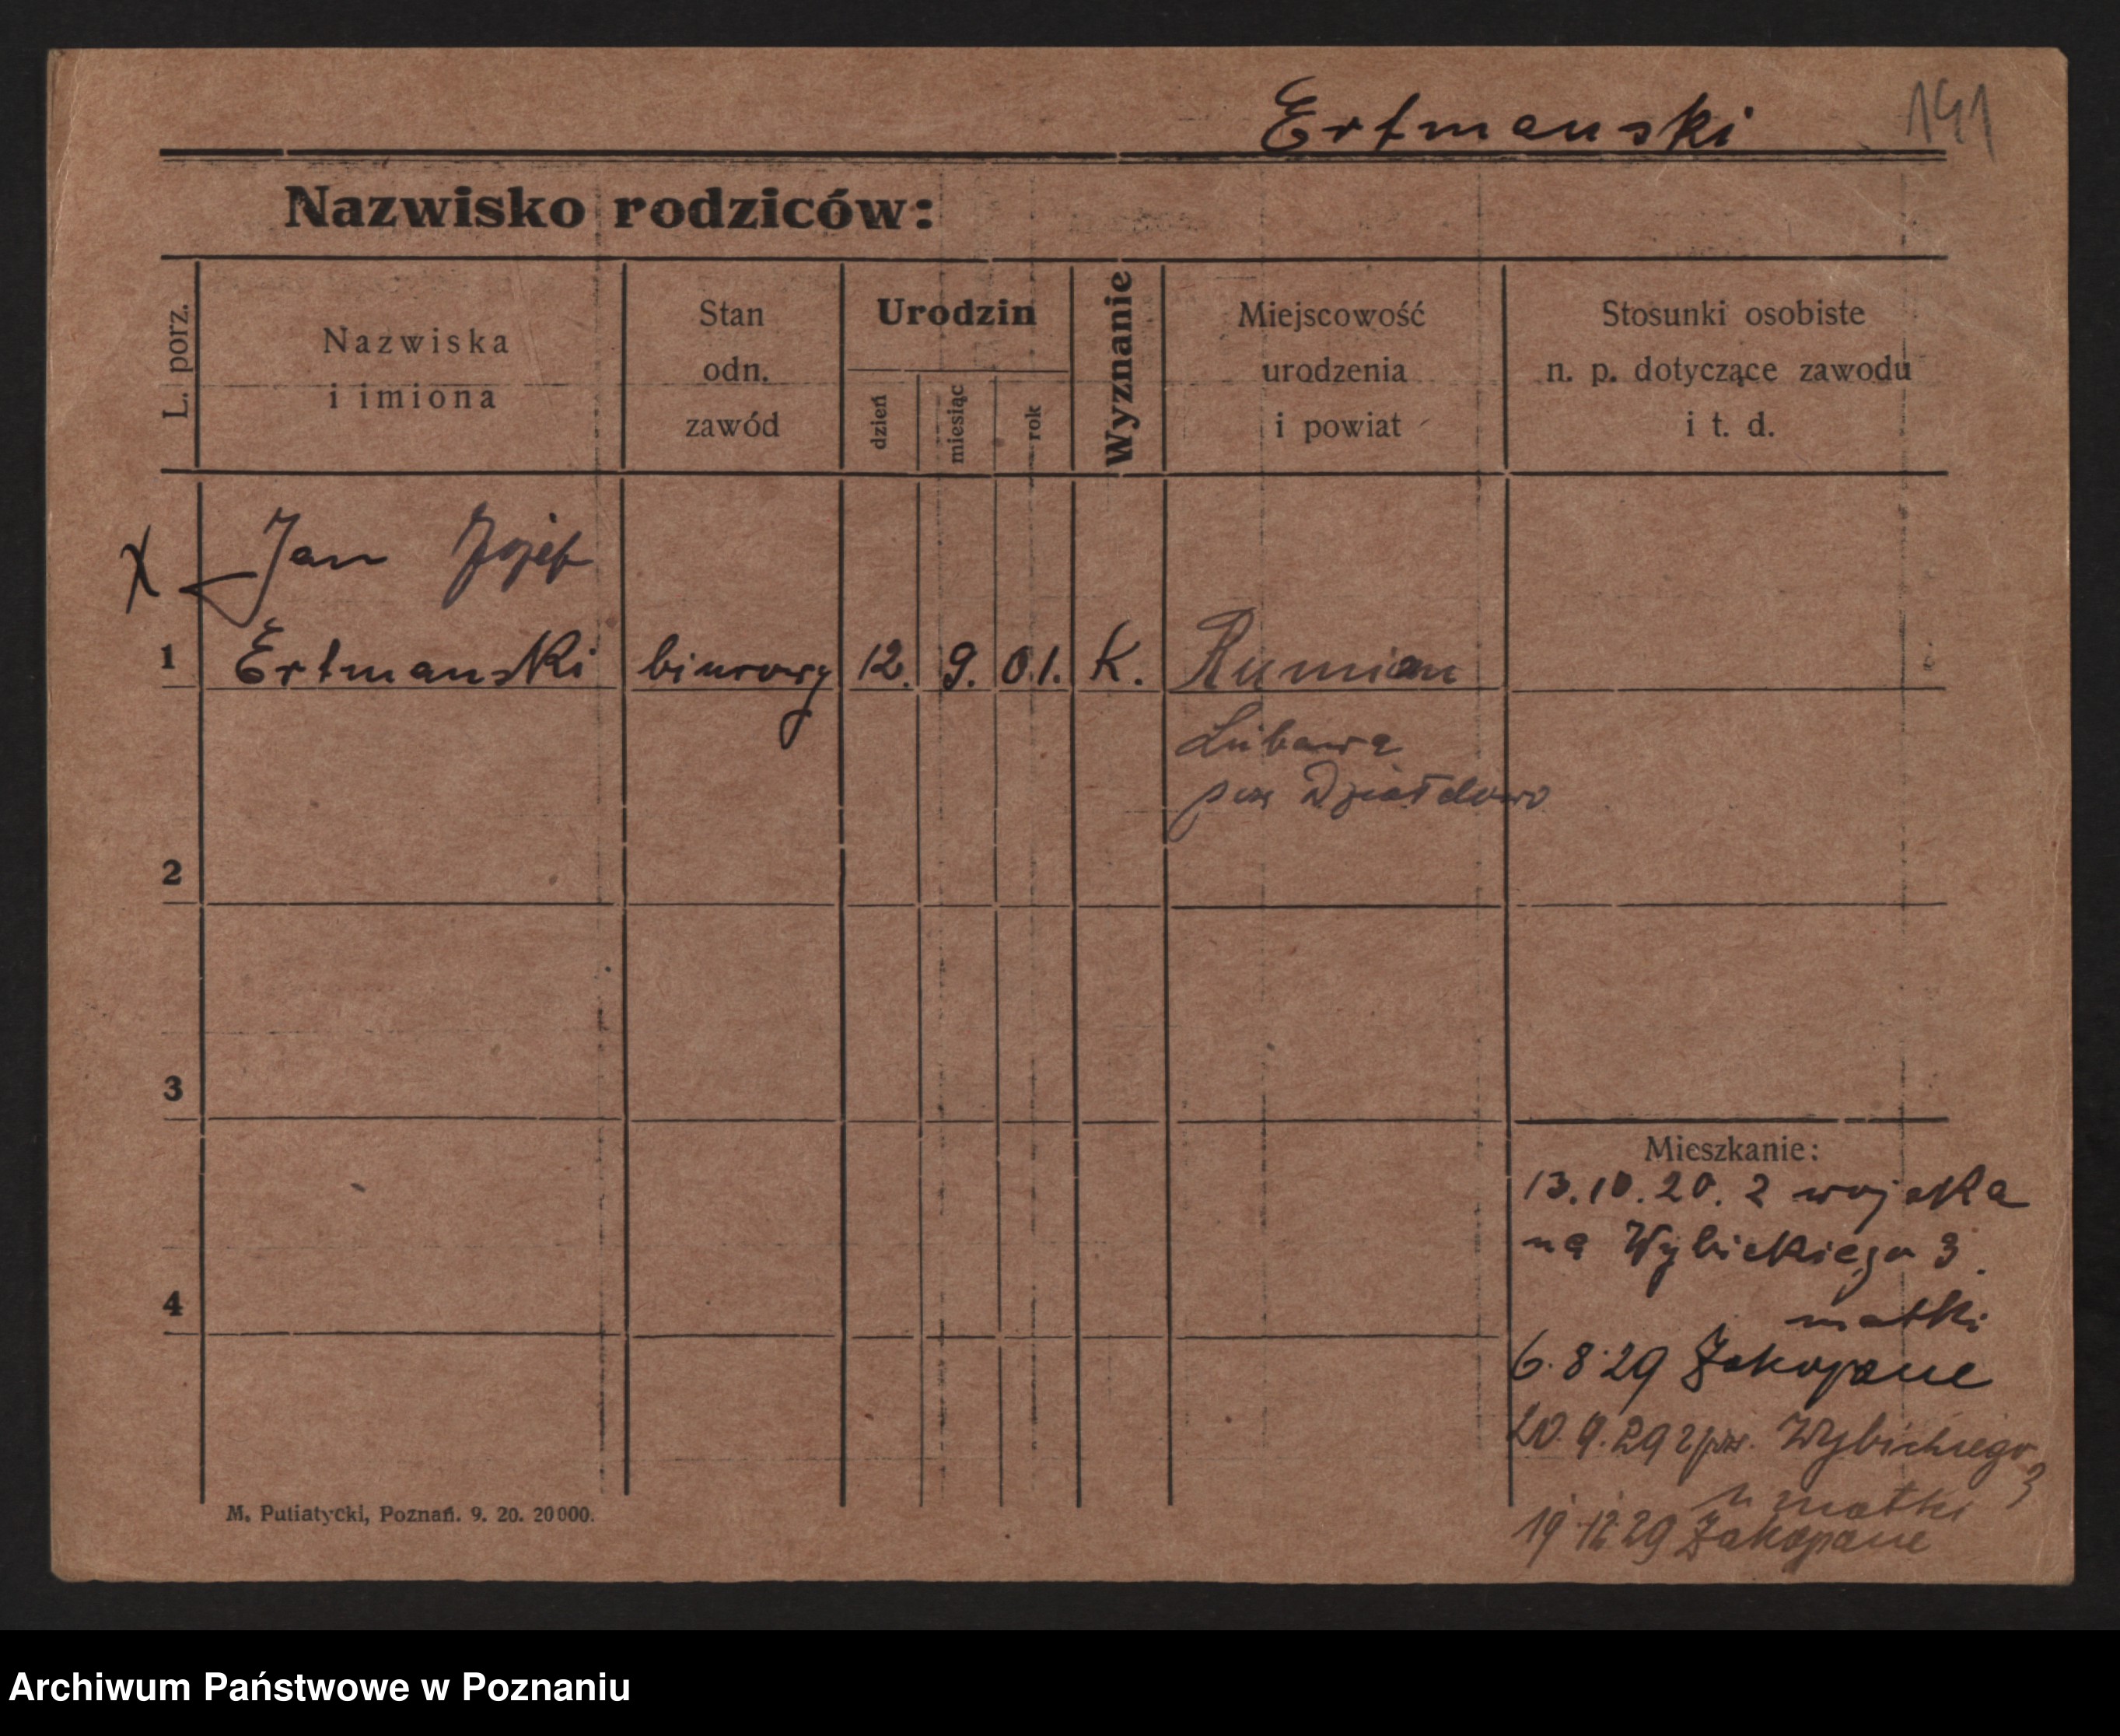 Ertmanski 141
Nazwisko rodziców:
L. porz.
Nazwiska
i imiona
Stan
odn.
zawód
Urodzin
dzień
miesiąc
rok
Wyznanie
Miejscowość
urodzenia
i powiat
Stosunki osobiste
n. p. dotyczące zawodu
i t. d.
x Jan Józef
1 Ertmanski biurowy 12. 9. 01. K. Rumian
Lubawa
pow Działdowo
2
3
4
Mieszkanie:
13.10.20. z wojska
na Wybickiego 3.
matki
6.8.29 Zakopane
20.9.29 Wybickiego
3
u matki
19.12.29 Zakopane
M. Putiatycki, Poznań. 9. 20. 20000.
Archiwum Państwowe w Poznaniu